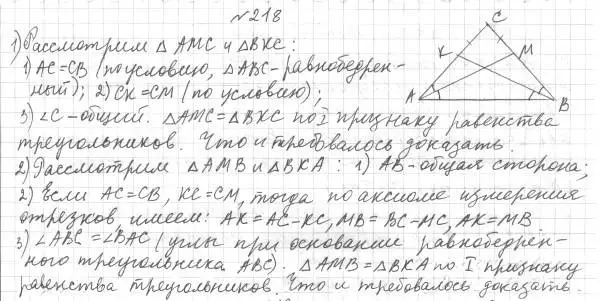 №218
1) Рассмотрим △ AMC и △ BKC:
1) AC=CB (по условию, △ABC-равнобедрен-
ный); 2) CK=CM (по условию);
3) ∠C-общий. △AMC=△BKC по I признаку равенства
треугольников. Что и требовалось доказать.
2) Рассмотрим △AMB и △BKA: 1) AB-общая сторона;
2) Если AC=CB, KC=CM, тогда по аксиоме измерения
отрезков имеем: AK=AC-KC, MB=BC-MC, AK=MB
3) ∠ABC=∠BAC (углы при основании равнобедрен-
ного треугольника ABC). △AMB=△BKA по I признаку
равенства треугольников. Что и требовалось доказать.
C
K
M
A
B